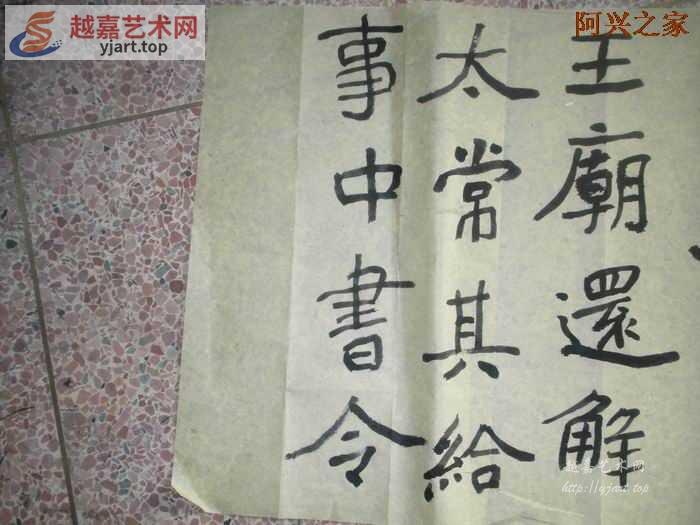 越嘉艺术网
yjart.top
阿兴之家
王廟還解
太常其給
事中書令
越嘉艺术网
http://yjart.top